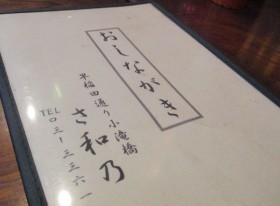 おしながき
早稲田通り小滝橋
さ和乃
TEL〇三ー三三六一